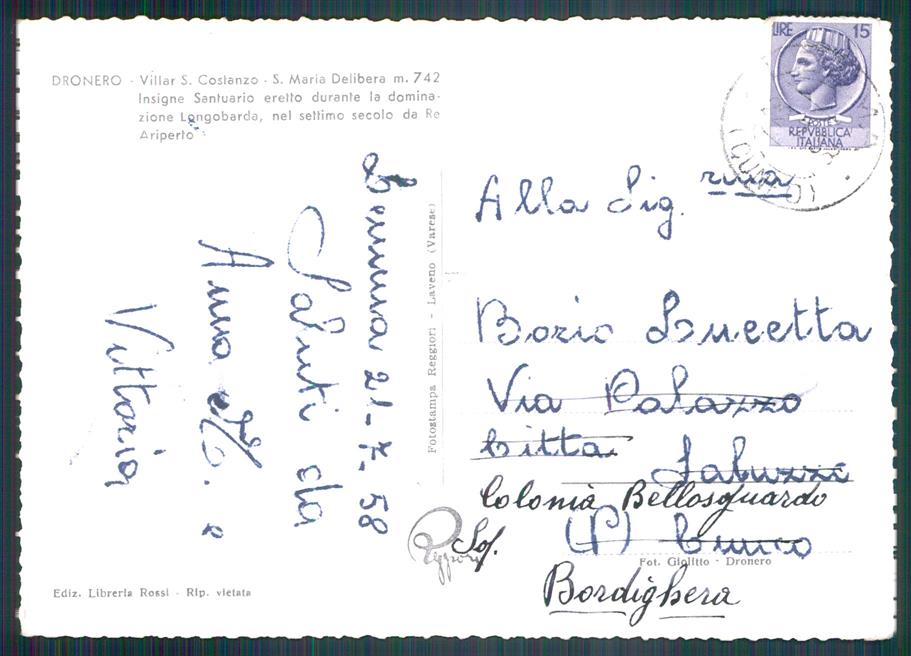 DRONERO - Villar S. Costanzo - S. Maria Delibera m. 742
Insigne Santuario eretto durante la domina-
zione Longobarda, nel settimo secolo da Re
Ariperto
LIRE 15
POSTE
REPVBBLICA
ITALIANA
21-7-58
Saluti da
Anna M. e
Vittoria
Fotostampa Reggiori - Laveno (Varese)
Alla Sig. rina
Bozio Lucetta
Via Palazzo
Città
Saluzzo
Colonia Bellosguardo
(P) Cuneo
Fot. Giolitto - Dronero
Bordighera
Reggiori
Ediz. Libreria Rossi - Rip. vietata